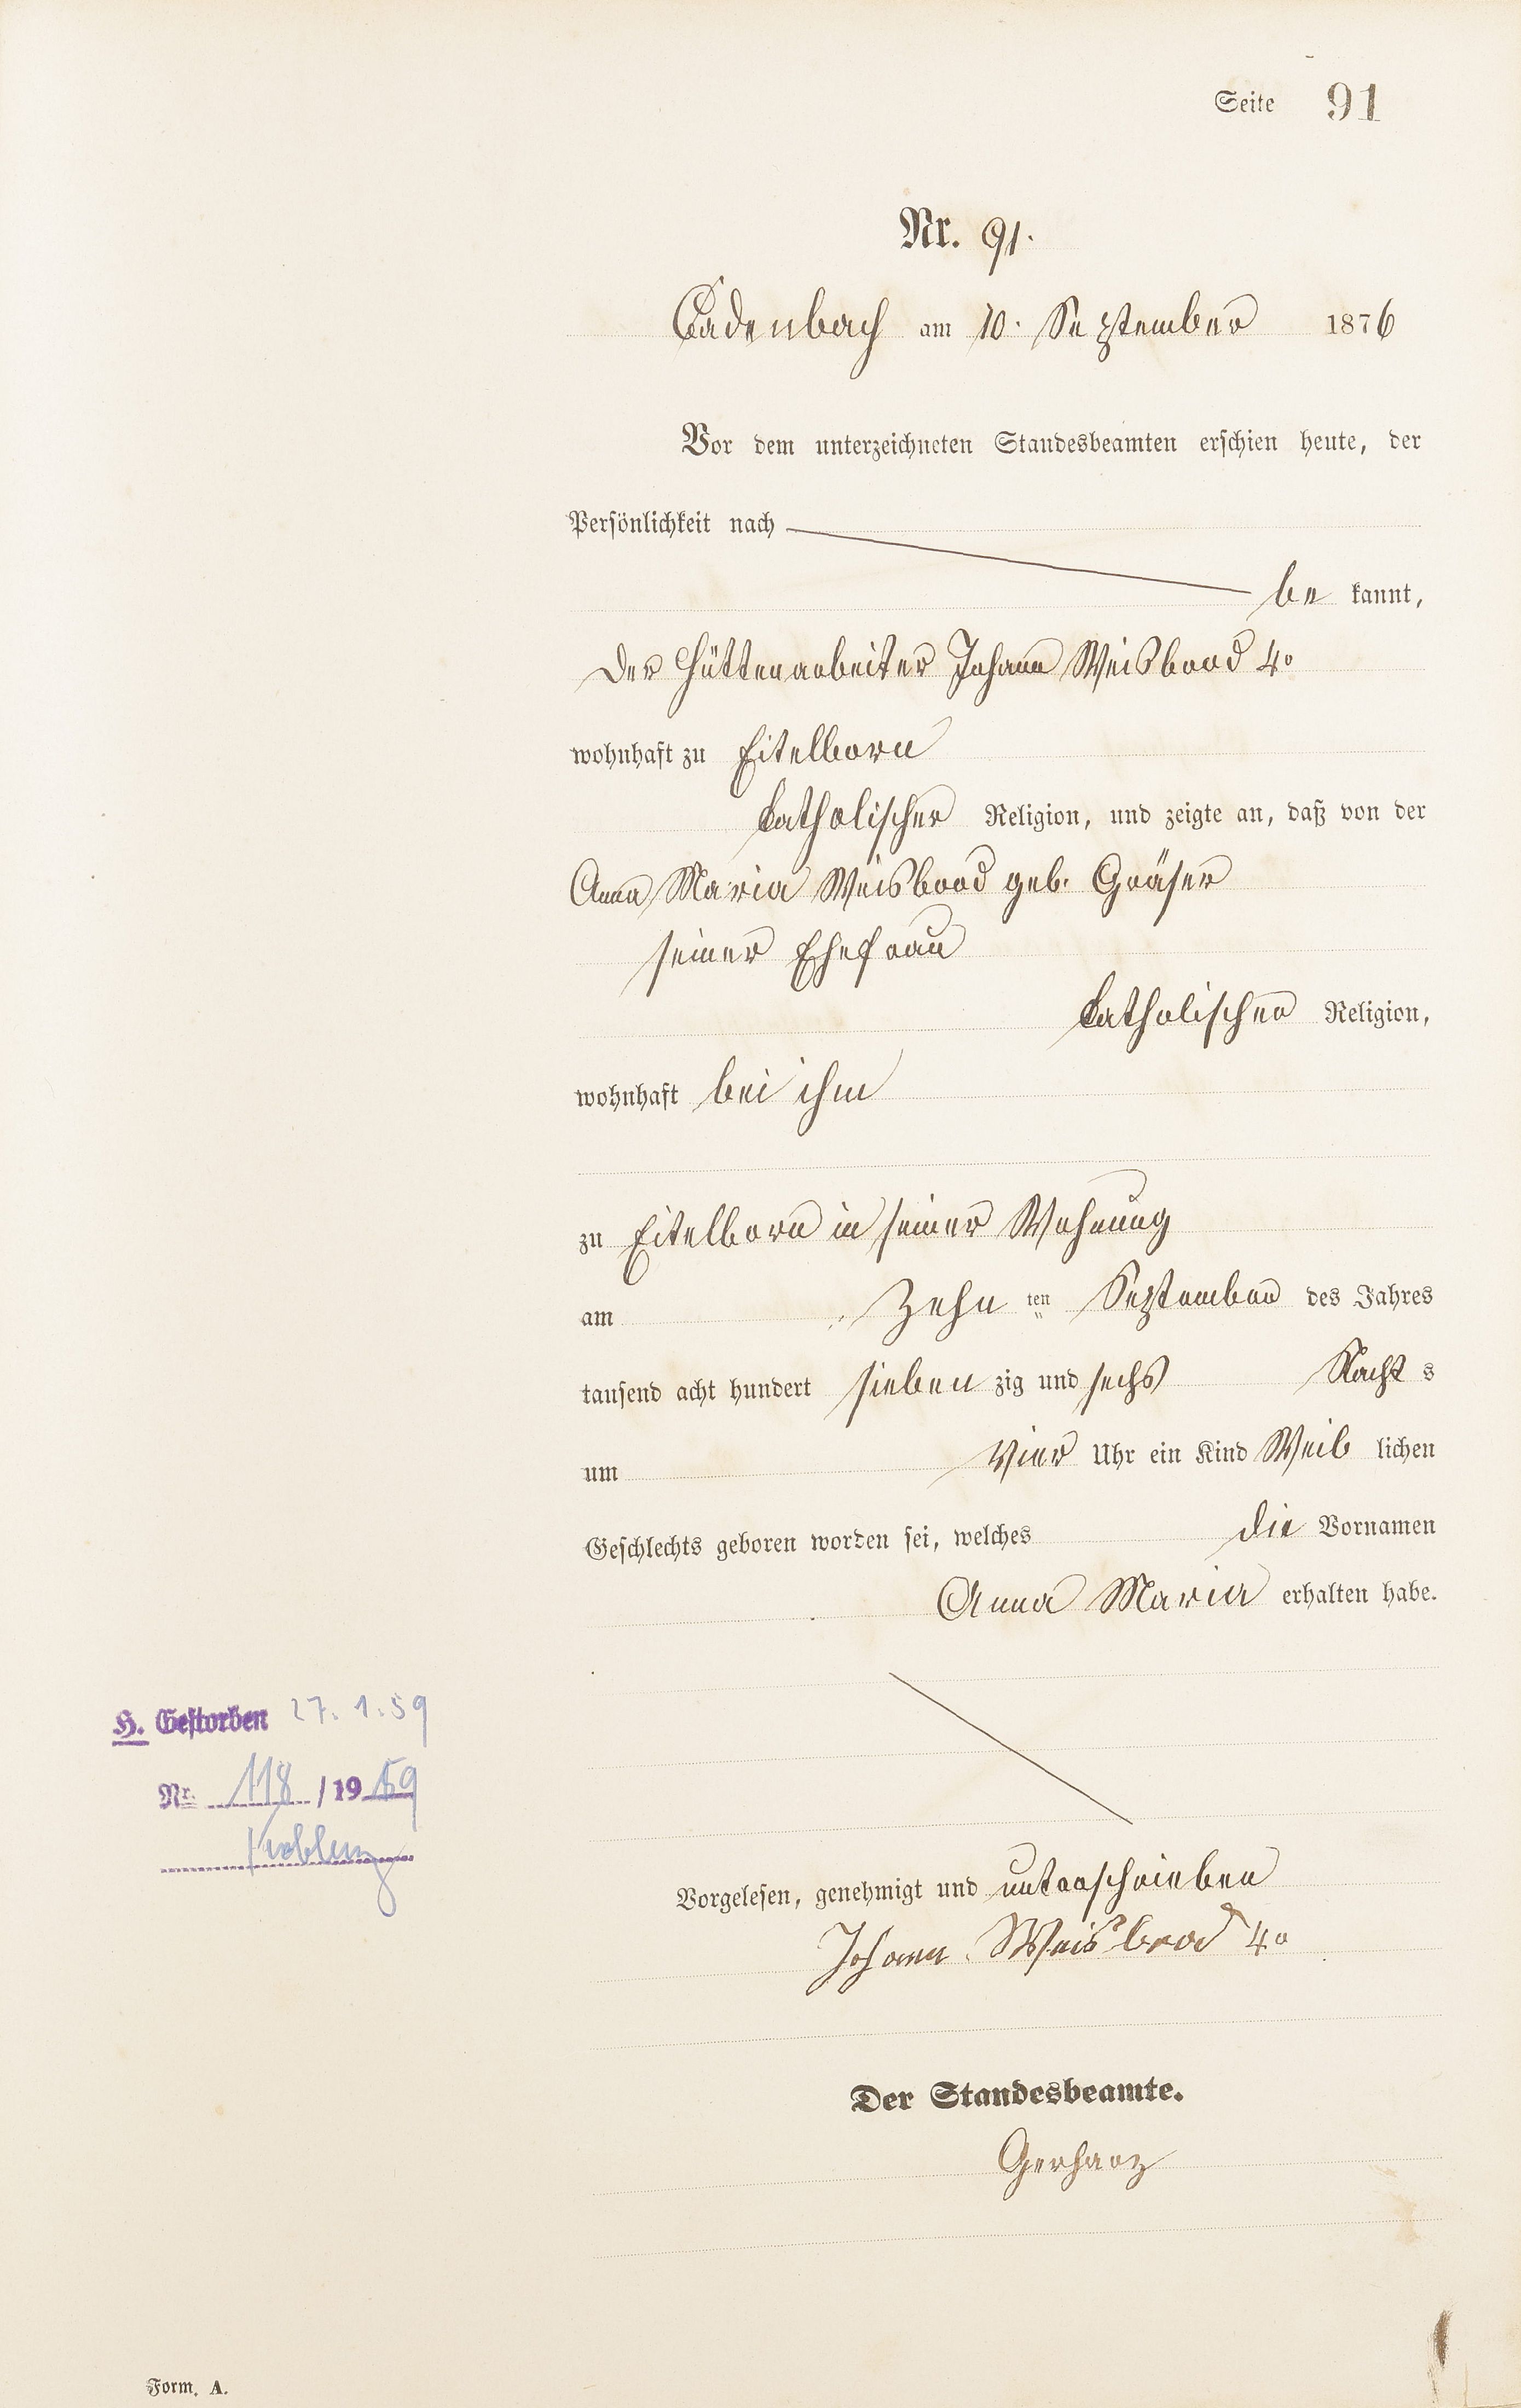 Seite 91
Nr. 91.
Cadenbach am 10. September 1876
Vor dem unterzeichneten Standesbeamten erschien heute, der
Persönlichkeit nach
be kannt,
der Hüttenarbeiter Johann Weisbrod 4o
wohnhaft zu Eitelborn
katholischer Religion, und zeigte an, daß von der
Anna Maria Weisbrod geb. Gräser
seiner Ehefrau
katholischer Religion,
wohnhaft bei ihm
zu Eitelborn in seiner Wohnung
am Zehn ten September des Jahres
tausend acht hundert sieben zig und sechs Nacht s
um Vier Uhr ein Kind Weib lichen
Geschlechts geboren worden sei, welches die Vornamen
Anna Maria erhalten habe.
H. Gestorben 27.1.59
Nr. 118 / 19 59
Koblenz
Vorgelesen, genehmigt und unterschrieben
Johann Weisbrod 4o
Der Standesbeamte.
Gerharz
Form. A.